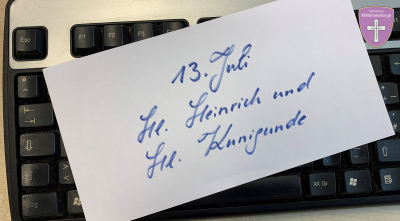 13. Juli
Hl. Heinrich und
Hl. Kunigunde
Esc
F1
F2
F3
F4
Alt Gr